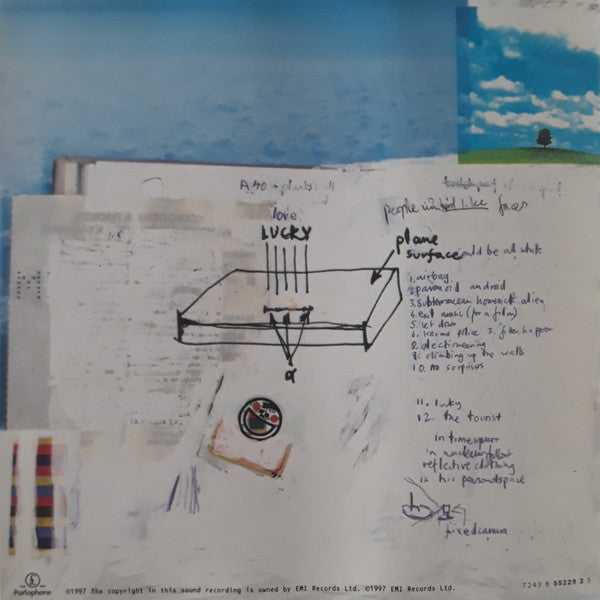 A40
love
people
like faces
LUCKY
plane
surface
could be all white
1. airbag
2 paranoid android
3. subterranean homesick alien
4. exit music (for a film)
5. let down
6. karma police 7. fitter happier
8. electioneering
9. climbing up the walls
10. no surprises
M
11. lucky
12. the tourist
in times square
in nuclear fallout
reflective clothing
in his personal space
fixed camera
Parlophone
℗1997 The copyright in this sound recording is owned by EMI Records Ltd. ©1997 EMI Records Ltd.
7243 8 55229 2 5